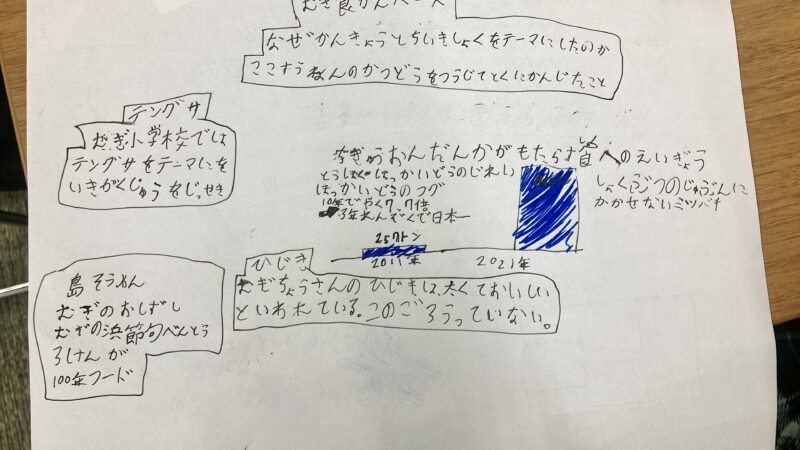 むぎ食かんバース
なぜかんきょうとちいきしょくをテーマにしたのか
ここすうねんのかつどうをつうじてとくにかんじたこと
テングサ
むぎ小学校では
テングサをテーマにを
いきがくじゅうをじっせき
ちきゅうおんだんかがもたらす
へのえいぎょう
とうほく・ほっかいどうのじれい
ほっかいどうのフグ
10年でやく7.7倍
3年れんぞくで日本一
しょくぶつのじゅふんに
かかせないミツバチ
257トン
2011年
2021年
ひじき
むぎちょうさんのひじきは、太くておいしい
といわれている。このごろうっていない。
島そうめん
むぎのおしずし
むぎの浜節句べんとう
3けんが
100年フード